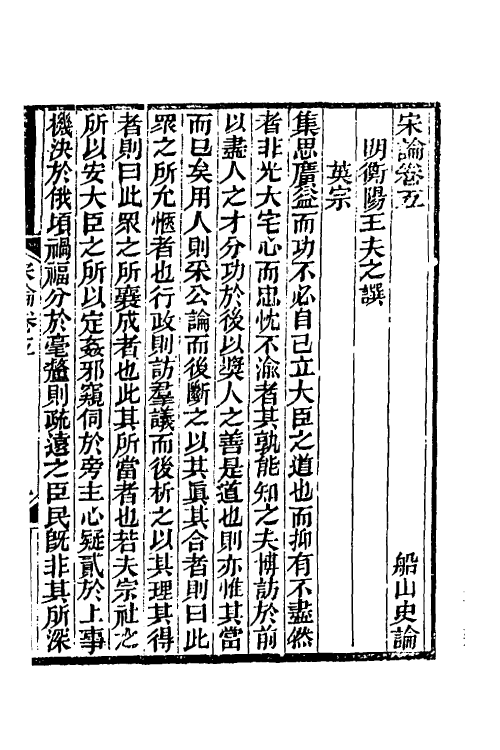 宋論卷五
船山史論
明衡陽王夫之譔
英宗
集思廣益而功不必自己立大臣之道也而抑有不盡然
者非光大宅心而忠忱不渝者其孰能知之夫博訪於前
以盡人之才分功於後以奬人之善是道也則亦惟其當
而已矣用人則采公論而後斷之以其眞其合者則曰此
眾之所允愜者也行政則訪羣議而後析之以其理其得
者則曰此眾之所襄成者也此其所當者也若夫宗社之
所以安大臣之所以定姦邪窺伺於旁主心疑貳於上事
機決於俄頃禍福分於毫釐則疏遠之臣民旣非其所深
宋論卷五
一